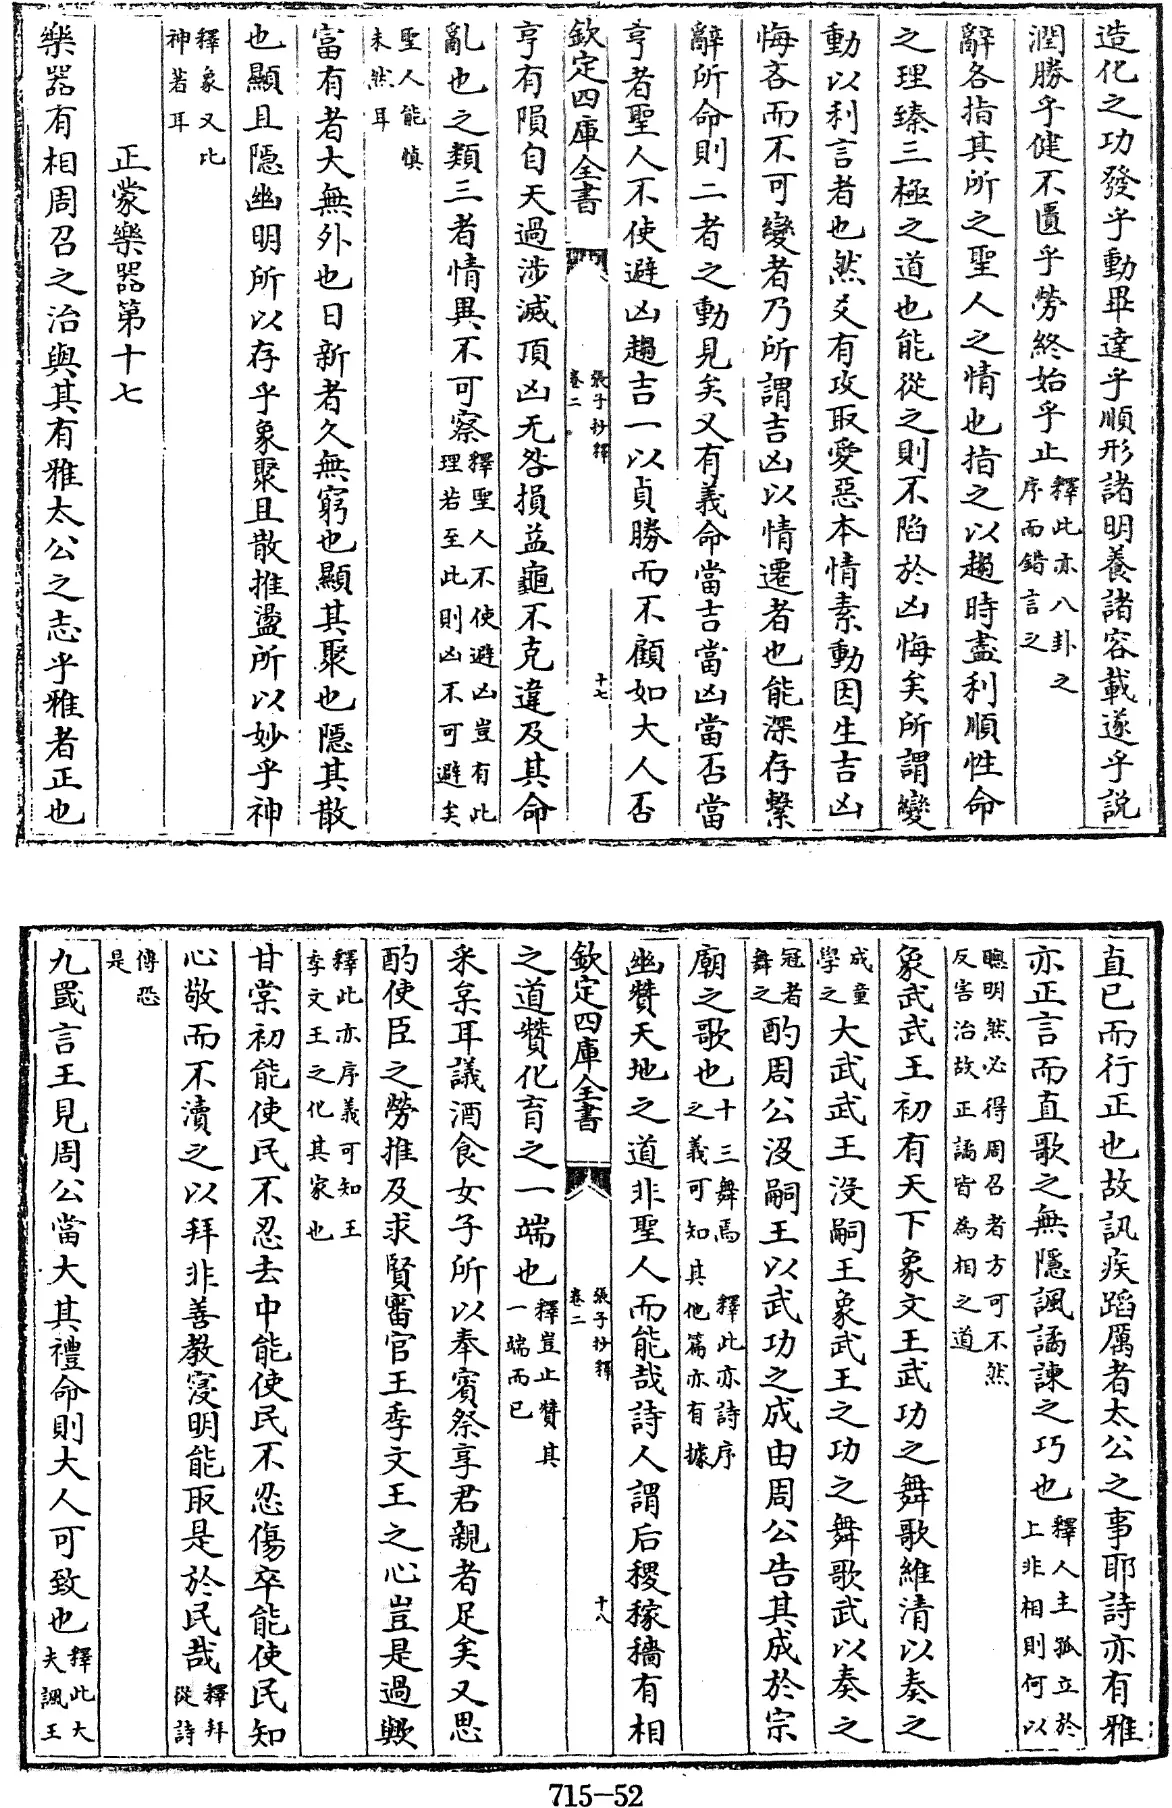 造化之功發乎動畢達乎順形諸明養諸容載遂乎説
潤勝乎健不匱乎勞終始乎止釋此亦八卦之序而錯言之
辭各指其所之聖人之情也指之以趨時盡利順性命
之理臻三極之道也能從之則不陷於凶悔矣所謂變
動以利言者也然爻有攻取愛惡本情素動因生吉凶
悔吝而不可變者乃所謂吉凶以情遷者也能深存繫
辭所命則二者之動見矣又有義命當吉當凶當否當
亨者聖人不使避凶趨吉一以貞勝而不顧如大人否
欽定四庫全書 張子抄釋 卷二 十七
亨有隕自天過涉滅頂凶无咎損益龜不克違及其命
亂也之類三者情異不可察釋聖人不使避凶豈有此理若至此則凶不可避矣
聖人能慎未然耳
富有者大無外也日新者久無窮也顯其聚也隱其散
也顯且隱幽明所以存乎象聚且散推盪所以妙乎神
釋象又比神若耳
正蒙樂器第十七
樂器有相周召之治與其有雅太公之志乎雅者正也
直已而行正也故訊疾蹈厲者太公之事耶詩亦有雅
亦正言而直歌之無隱諷譎諫之巧也釋人主孤立於上非相則何以
聰明然必得周召者方可不然反害治故正譎皆為相之道
象武武王初有天下象文王武功之舞歌維清以奏之
成童學之大武武王没嗣王象武王之功之舞歌武以奏之
冠者舞之酌周公没嗣王以武功之成由周公告其成於宗
廟之歌也十三舞焉 釋此亦詩序之義可知其他篇亦有據
幽贊天地之道非聖人而能哉詩人謂后稷稼穡有相
欽定四庫全書 張子抄釋 卷二 十八
之道贊化育之一端也釋豈止贊其一端而已
采枲耳議酒食女子所以奉賓祭享君親者足矣又思
酌使臣之勞推及求賢審官王季文王之心豈是過歟
釋此亦序義可知王季文王之化其家也
甘棠初能使民不忍去中能使民不忍傷卒能使民知
心敬而不瀆之以拜非善教寖明能取是於民哉釋拜從詩
傳恐是
九罭言王見周公當大其禮命則大人可致也釋此大夫諷王
715—52